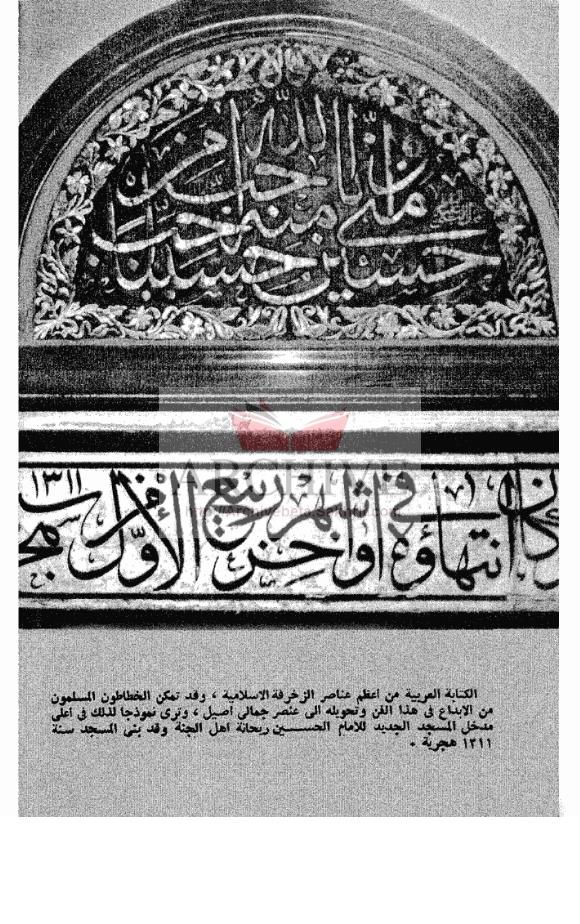 حسين منى وانا منه احب الله من احب حسينا
كان انتهاؤه فى أواخر شهر ربيع الأول ١٣١١
ARCHIVE
http://Archivebeta.Sakhrit.com
الكتابة العربية من أعظم عناصر الزخرفة الاسلامية ، وقد تمكن الخطاطون المسلمون
من الابداع فى هذا الفن وتحويله الى عنصر جمالى أصيل ، وترى نموذجا لذلك فى أعلى
مدخل المسجد الجديد للامام الحســـين ريحانة أهل الجنة وقد بنى المسجد سنة
١٣١١ هجرية .